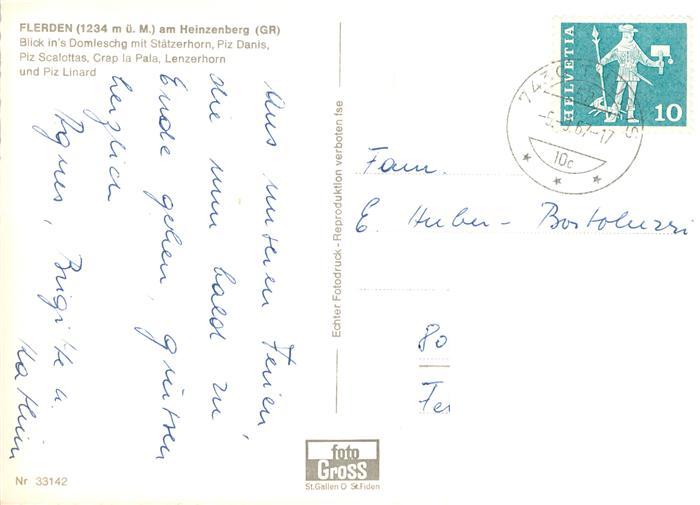 FLERDEN (1234 m ü. M.) am Heinzenberg (GR)
Blick in's Domleschg mit Stätzerhorn, Piz Danis,
Piz Scalottas, Crap la Pala, Lenzerhorn
und Piz Linard
Aus unseren Ferien,
die nun bald zu
Ende gehen, grüssen
herzlich
Agnes, Brigitte u.
Kathrin
Nr 33142
Echter Fotodruck - Reproduktion verboten fse
foto
Gross
St.Gallen O St.Fiden
HELVETIA
10
10c
Fam.
E. Huber - Bortoluzzi
80